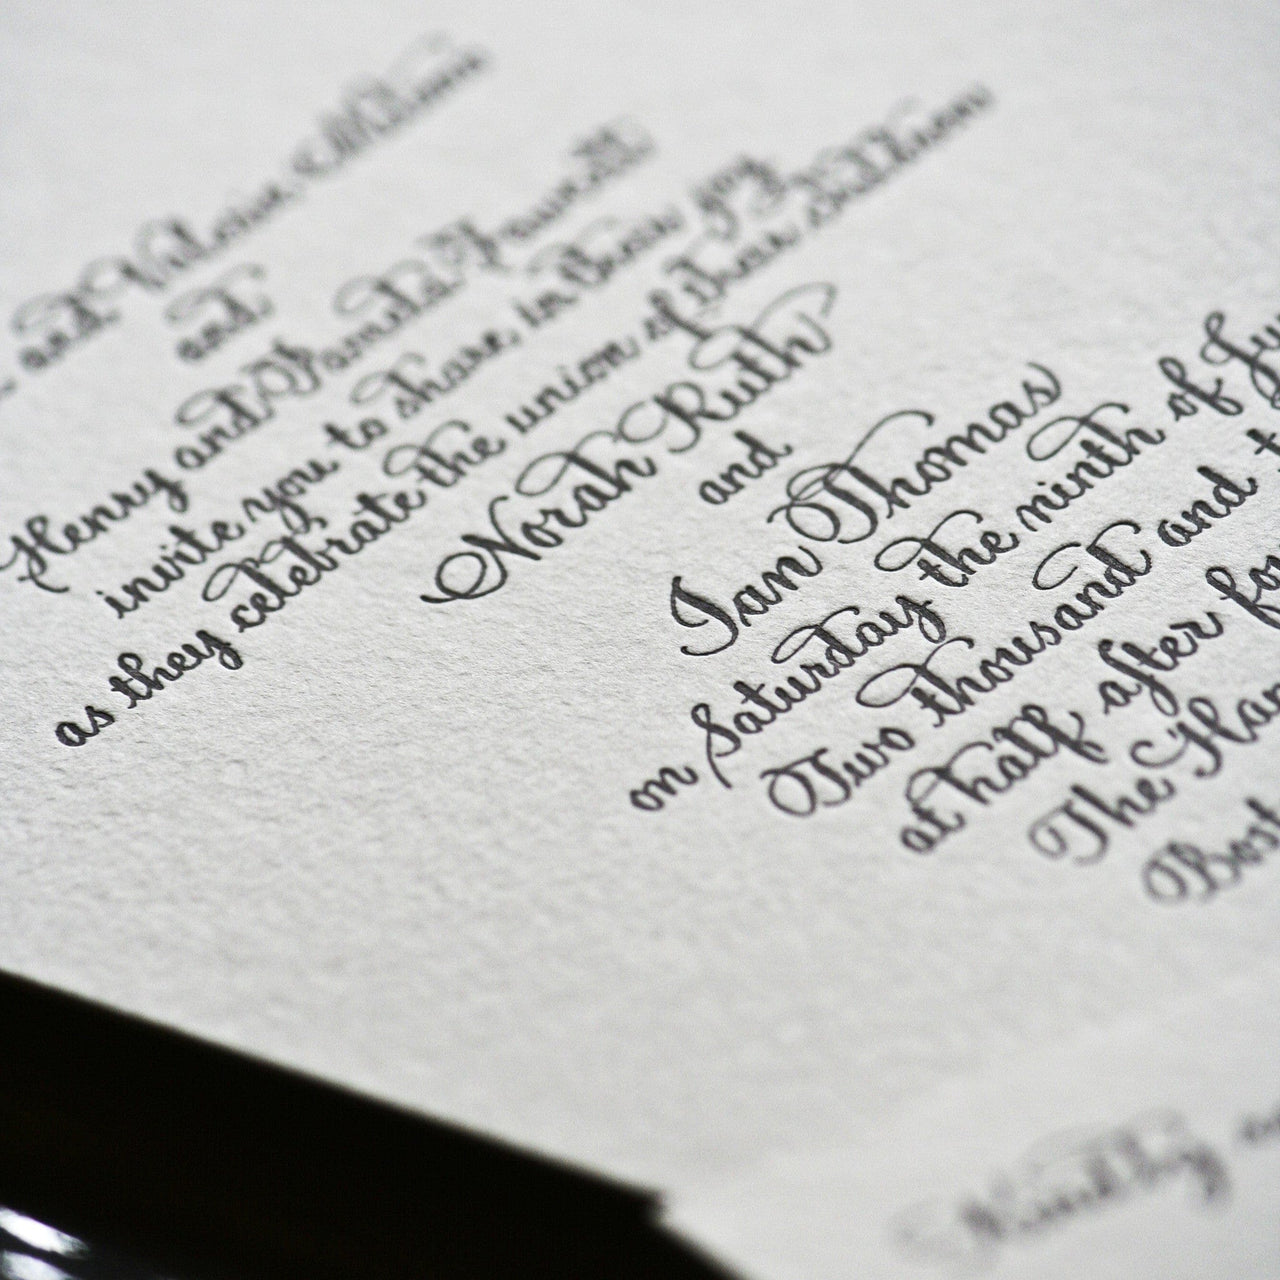 and
and
Henry and Pamela
invite you to share in their joy
as they celebrate the union of their children
Norah Ruth
and
Ian Thomas
on Saturday the ninth of Ju
Two thousand and t
at half after fou
The Har
Bost
Kindly